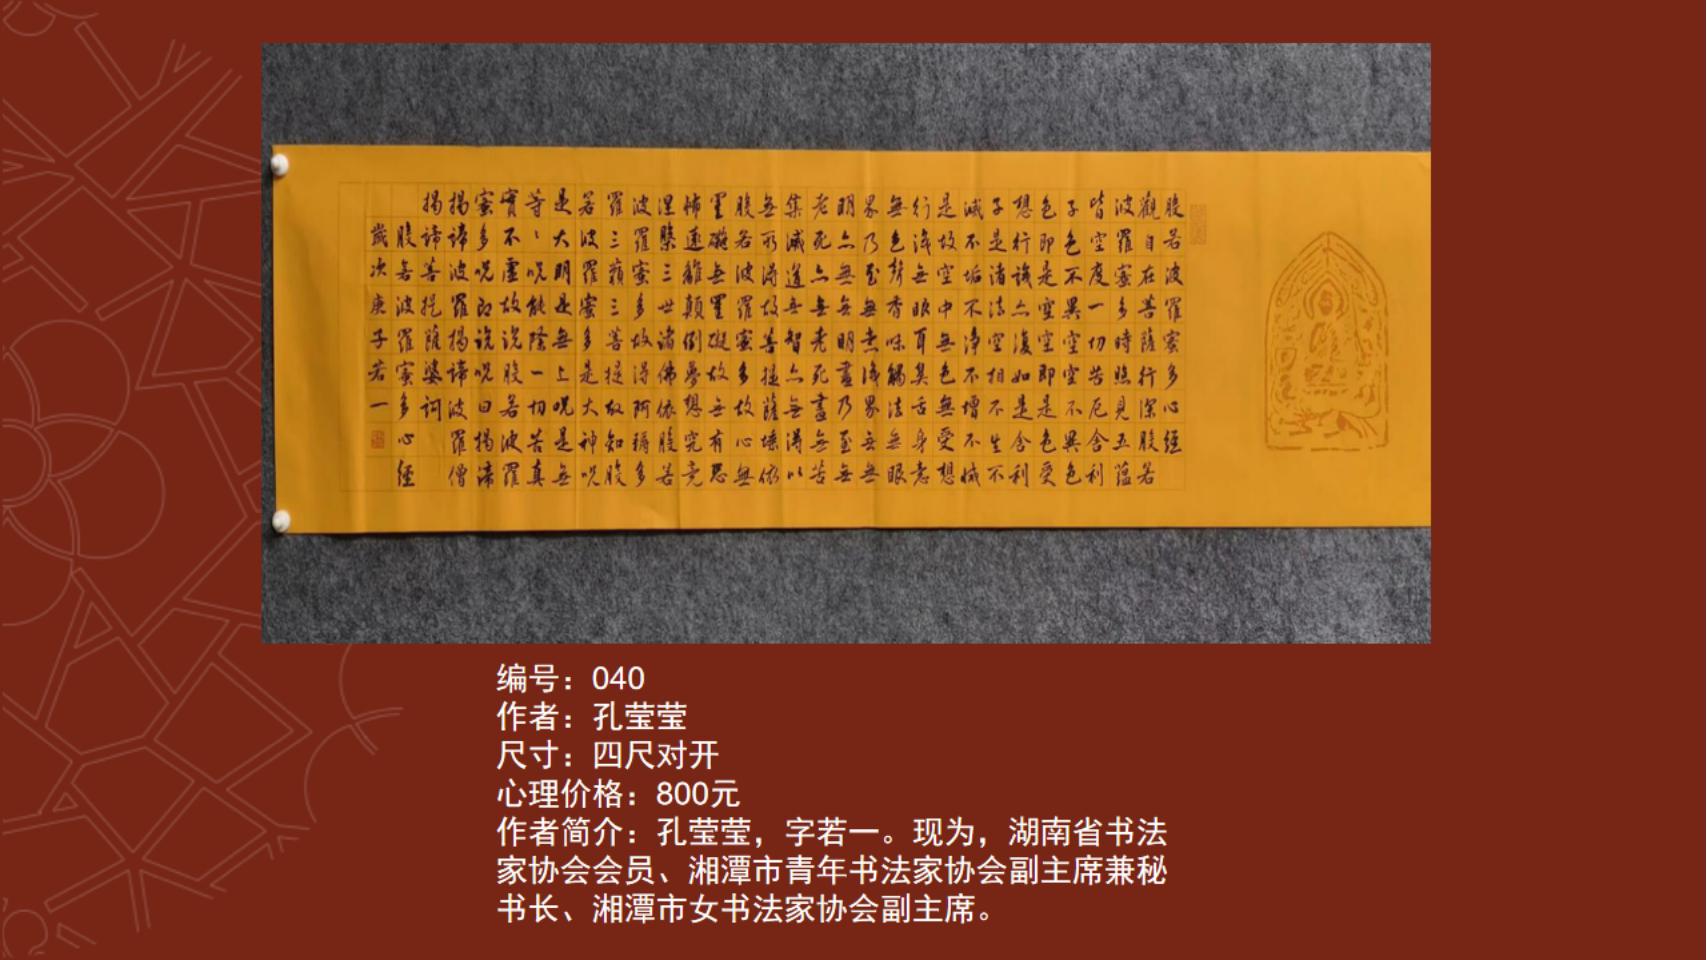 般若波羅蜜多心經
觀自在菩薩行深般若
波羅蜜多時照見五蘊
皆空度一切苦厄舍利
子色不異空空不異色
色即是空空即是色受
想行識亦復如是舍利
子是諸法空相不生不
滅不垢不淨不增不減
是故空中無色無受想
行識無眼耳鼻舌身意
無色聲香味觸法無眼
界乃至無意識界無無
明亦無無明盡乃至無
老死亦無老死盡無苦
集滅道無智亦無得以
無所得故菩提薩埵依
般若波羅蜜多故心無
罣礙無罣礙故無有恐
怖遠離顛倒夢想究竟
涅槃三世諸佛依般若
波羅蜜多故得阿耨多
羅三藐三菩提故知般
若波羅蜜多是大神呪
是大明是無上呪是無
等、呪能除一切苦真
實不虛故説般若波羅
蜜多呪即説呪曰揭諦
揭諦波羅揭諦波羅僧
揭諦菩提薩婆訶
般若波羅蜜多心經
歲次庚子若一
编号：040
作者：孔莹莹
尺寸：四尺对开
心理价格：800元
作者简介：孔莹莹，字若一。现为，湖南省书法
家协会会员、湘潭市青年书法家协会副主席兼秘
书长、湘潭市女书法家协会副主席。